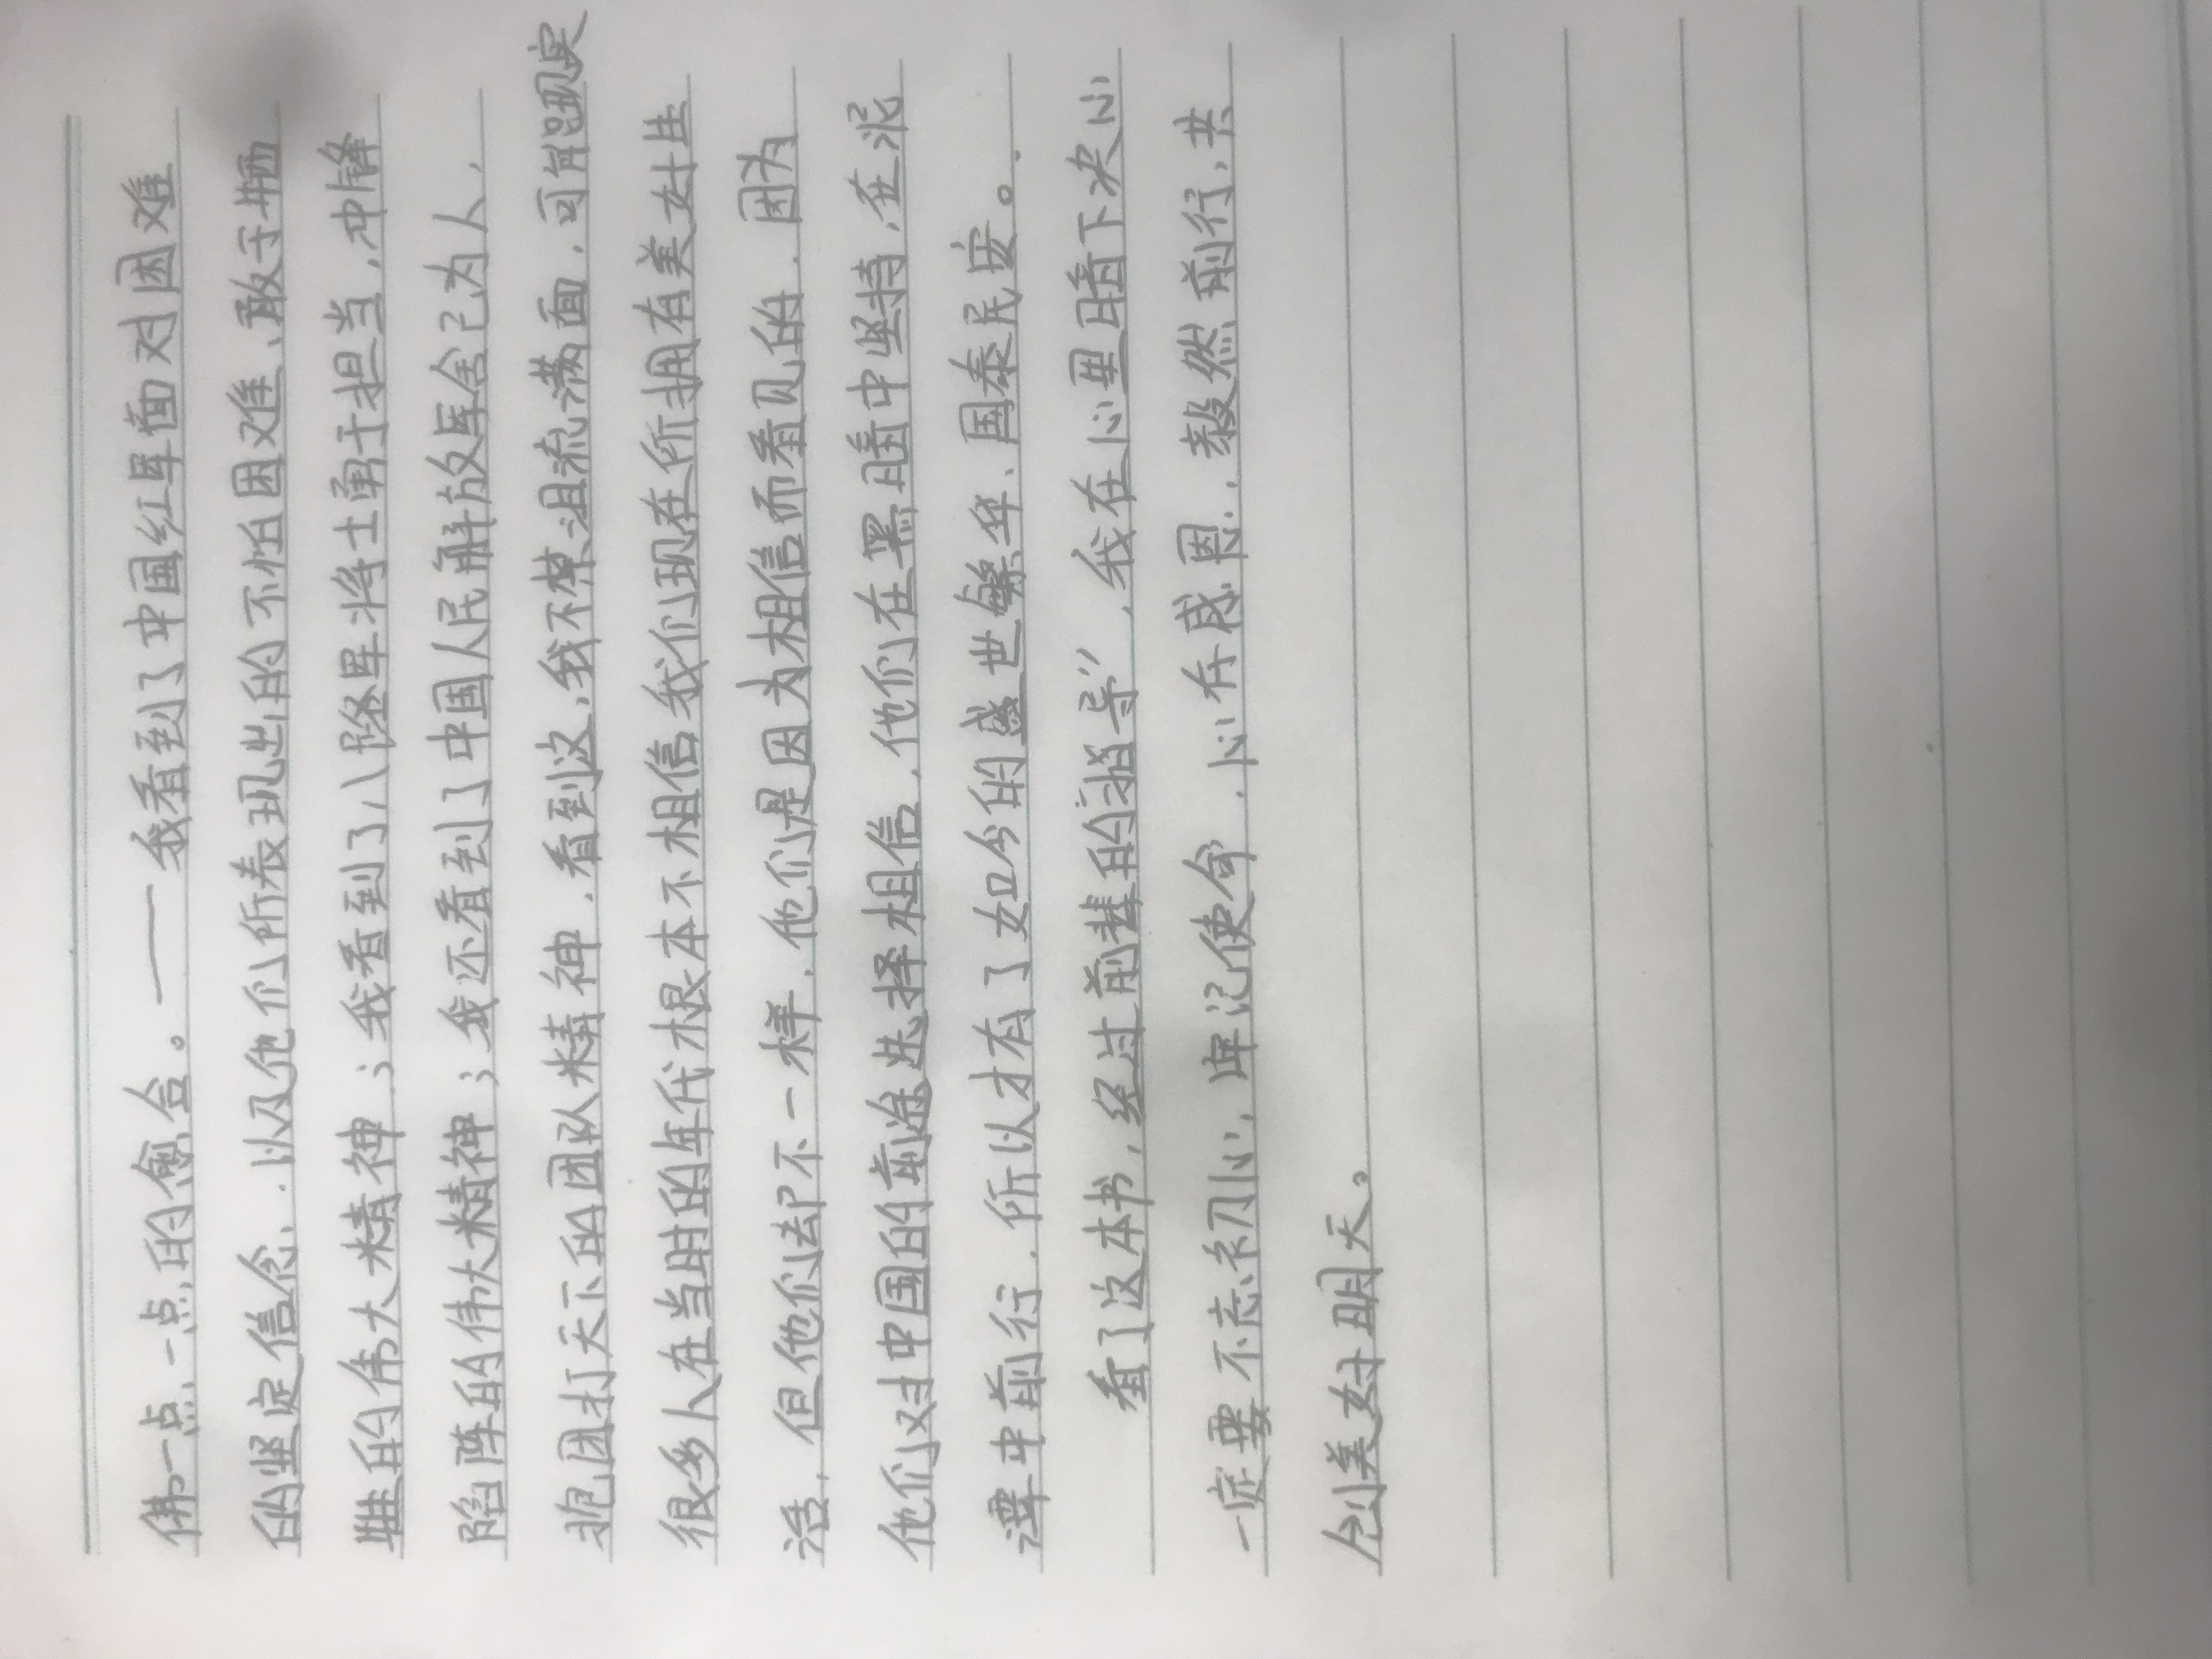 佛一点、一点的愈合。——我看到了中国红军面对困难
的坚定信念，以及他们所表现出的不怕困难、敢于牺
牲的伟大精神；我看到了八路军将士勇于担当，冲锋
陷阵的伟大精神；我还看到了中国人民解放军舍己为人，
抱团打天下的团队精神，看到这，我不禁泪流满面，可能现实
很多人在当时的年代根本不相信我们现在所拥有美好生
活，但他们去却不一样，他们是因为相信而看见的，因为
他们对中国的前途选择相信，他们在黑暗中坚持，在泥
潭中前行，所以才有了如今的盛世繁华、国泰民安。
看了这本书，经过前辈的"指导"，我在心里暗下决心
一定要不忘初心，牢记使命，心存感恩，毅然前行，共
创美好明天。